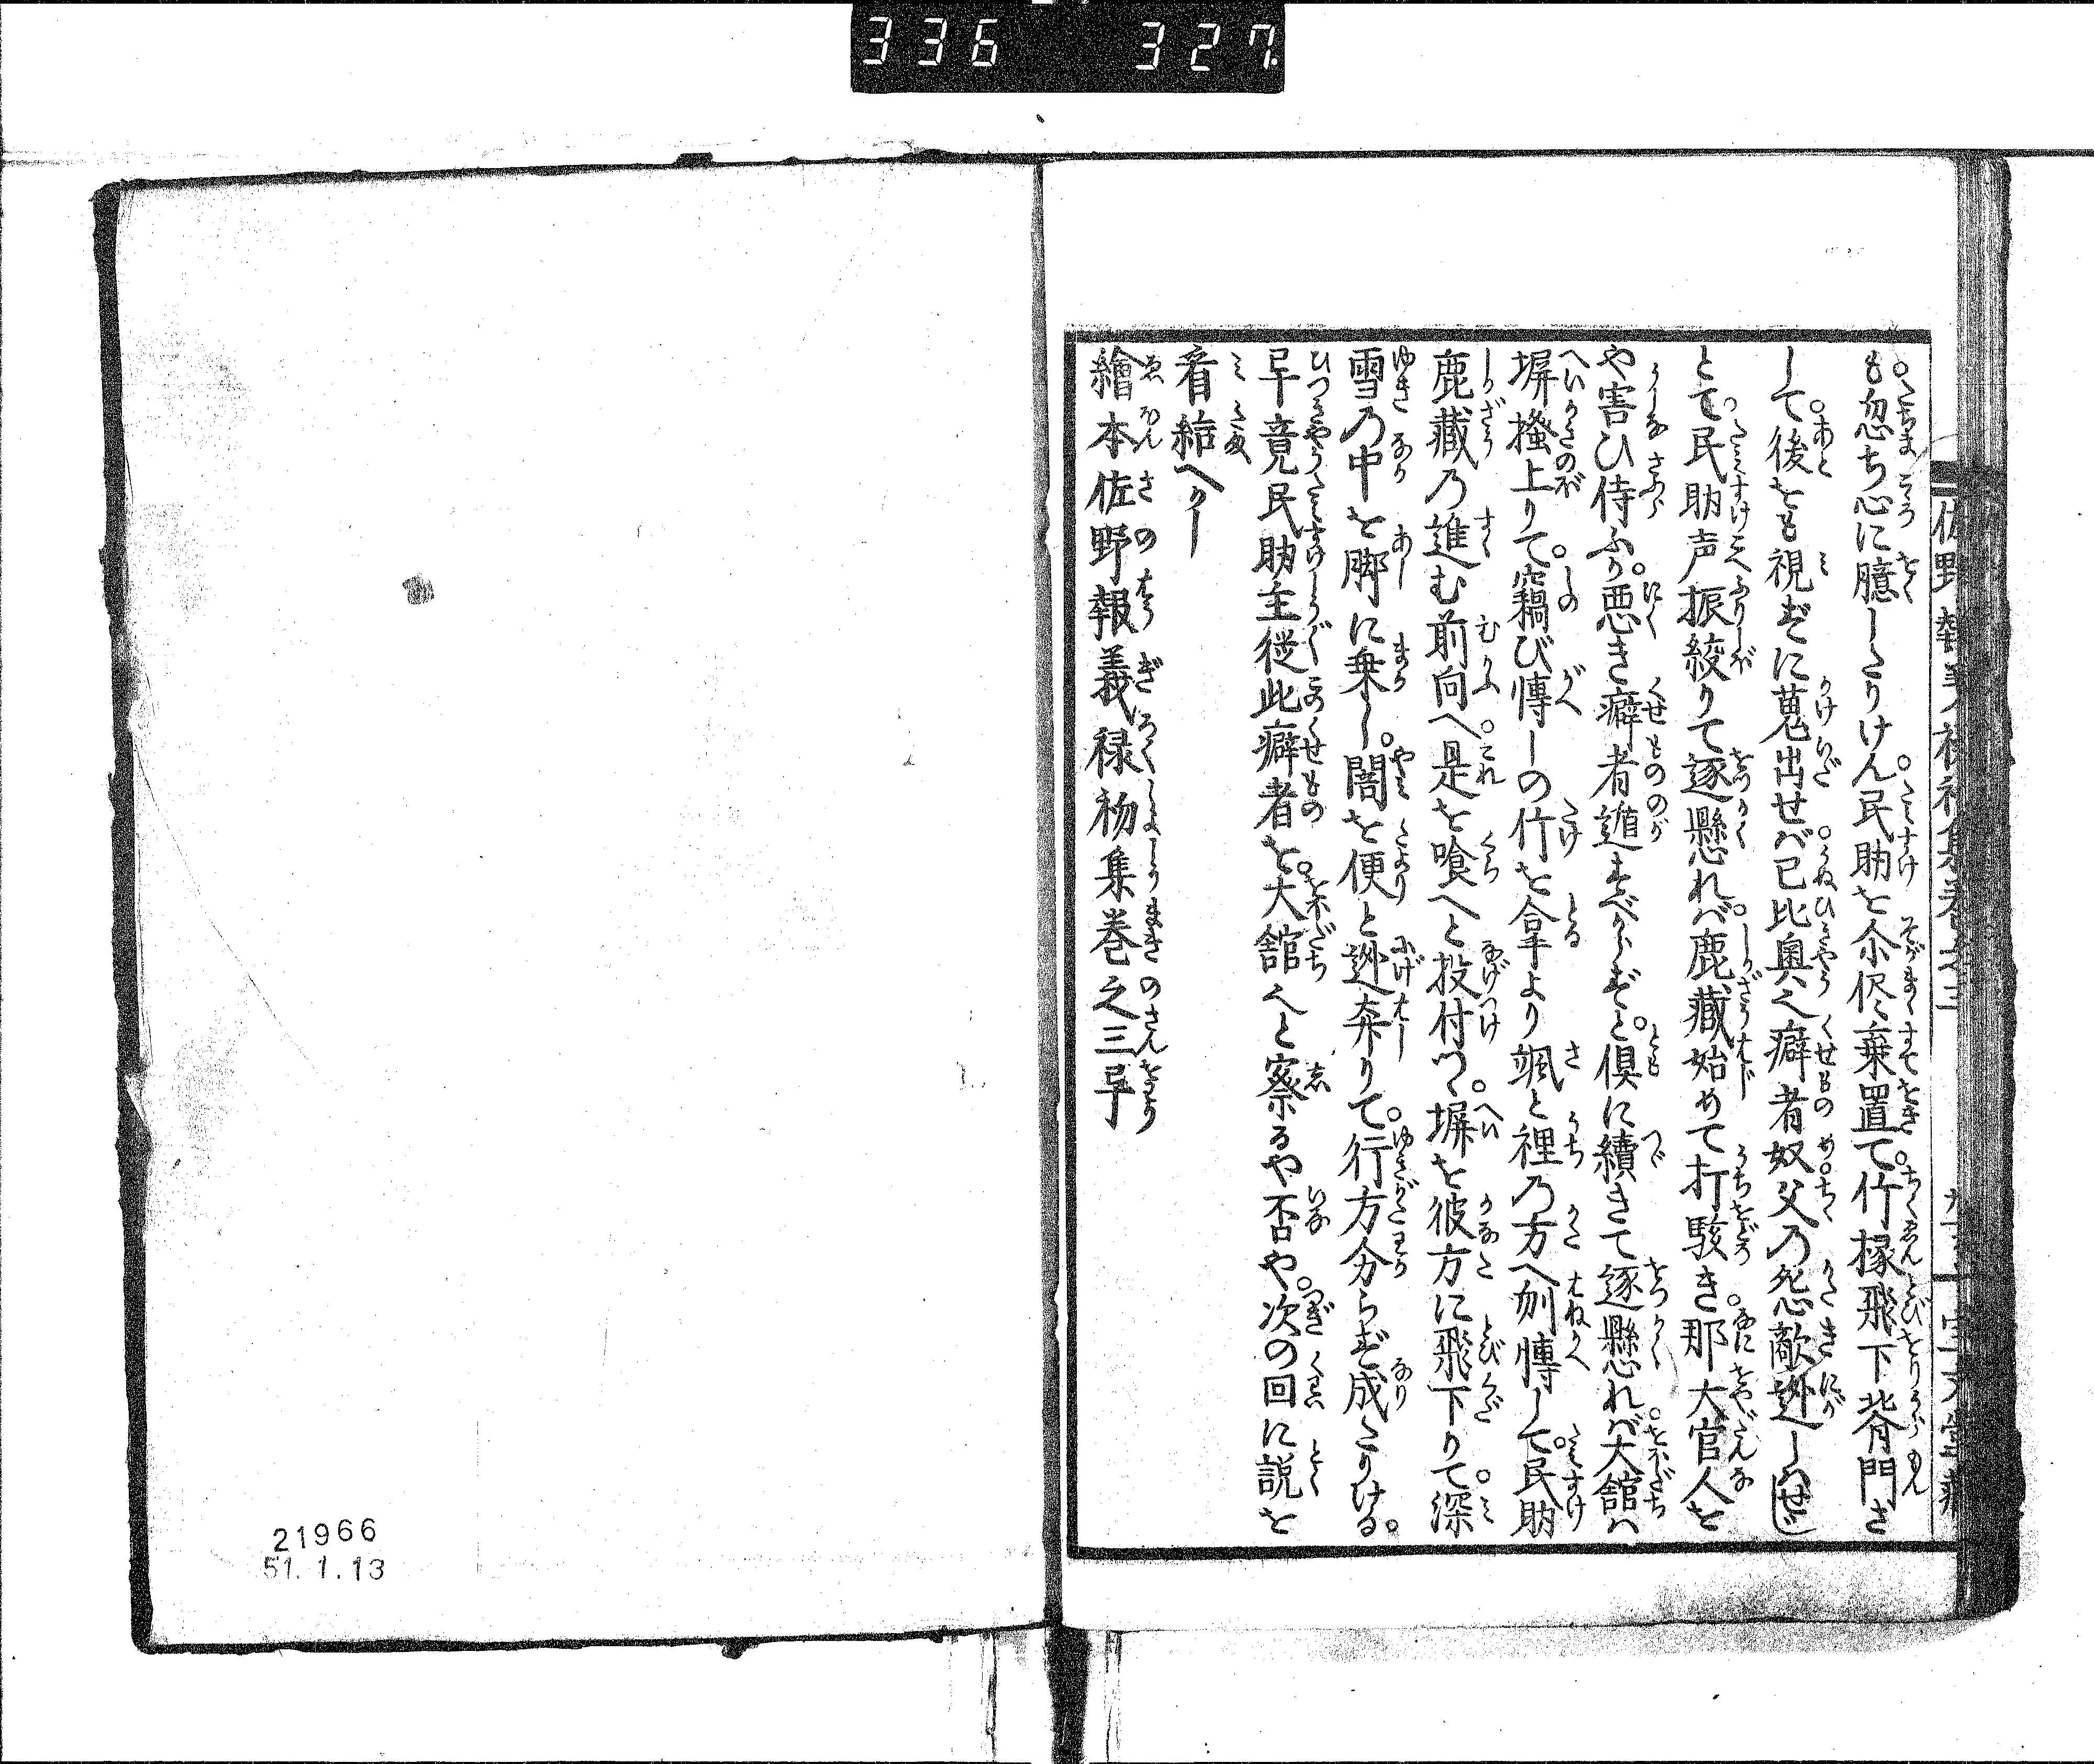 336 327
も忽ち心に臆したりけん。民助を介侭棄置て。竹椽飛下背門さ
して。後をも視ずに蒐出せば。已比興之癖者奴。父の怨敵迯しはせじ
とて。民助声振絞りて逐懸れば。鹿蔵始めて打駭き。那大官人を
や害ひ侍ふか。悪き癖者遁すべからずと。倶に續きて逐懸れば。大舘は
塀掻上りて。竊び慱しの竹を拿より颯と裡の方へ刎慱して。民助
鹿蔵の進む前向へ。是を喰へと投付つゝ。塀を彼方に飛下りて。深
雪の中を脚に乗し。闇を便と迯奔りて。行方分らず成たりける。
畢竟民助主従此癖者を。大舘へと察るや否や。次の回に説を
看給へかし
繪本佐野報義禄初集巻之三畢
佐野報義禄初集巻之三
21966
51.1.13